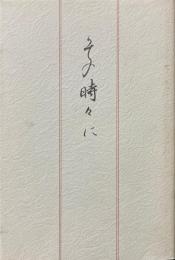 その時々に